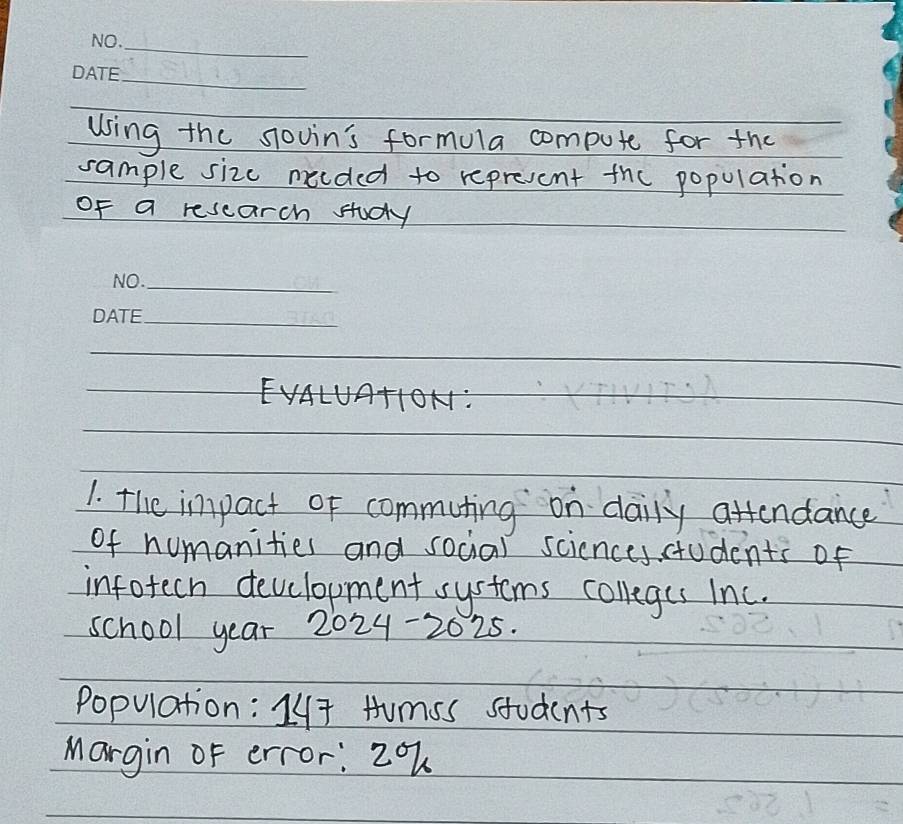 NO.
DATE
Using the slovin's formula compute for the
sample size needed to represent the population
of a research study
NO.
DATE
EVALUATION:
1. The impact of commuting on daily attendance
of humanities and social sciences students of
infotech development systems colleges Inc.
school year 2024-2025.
Population: 147 Humss students
Margin of error: 2%